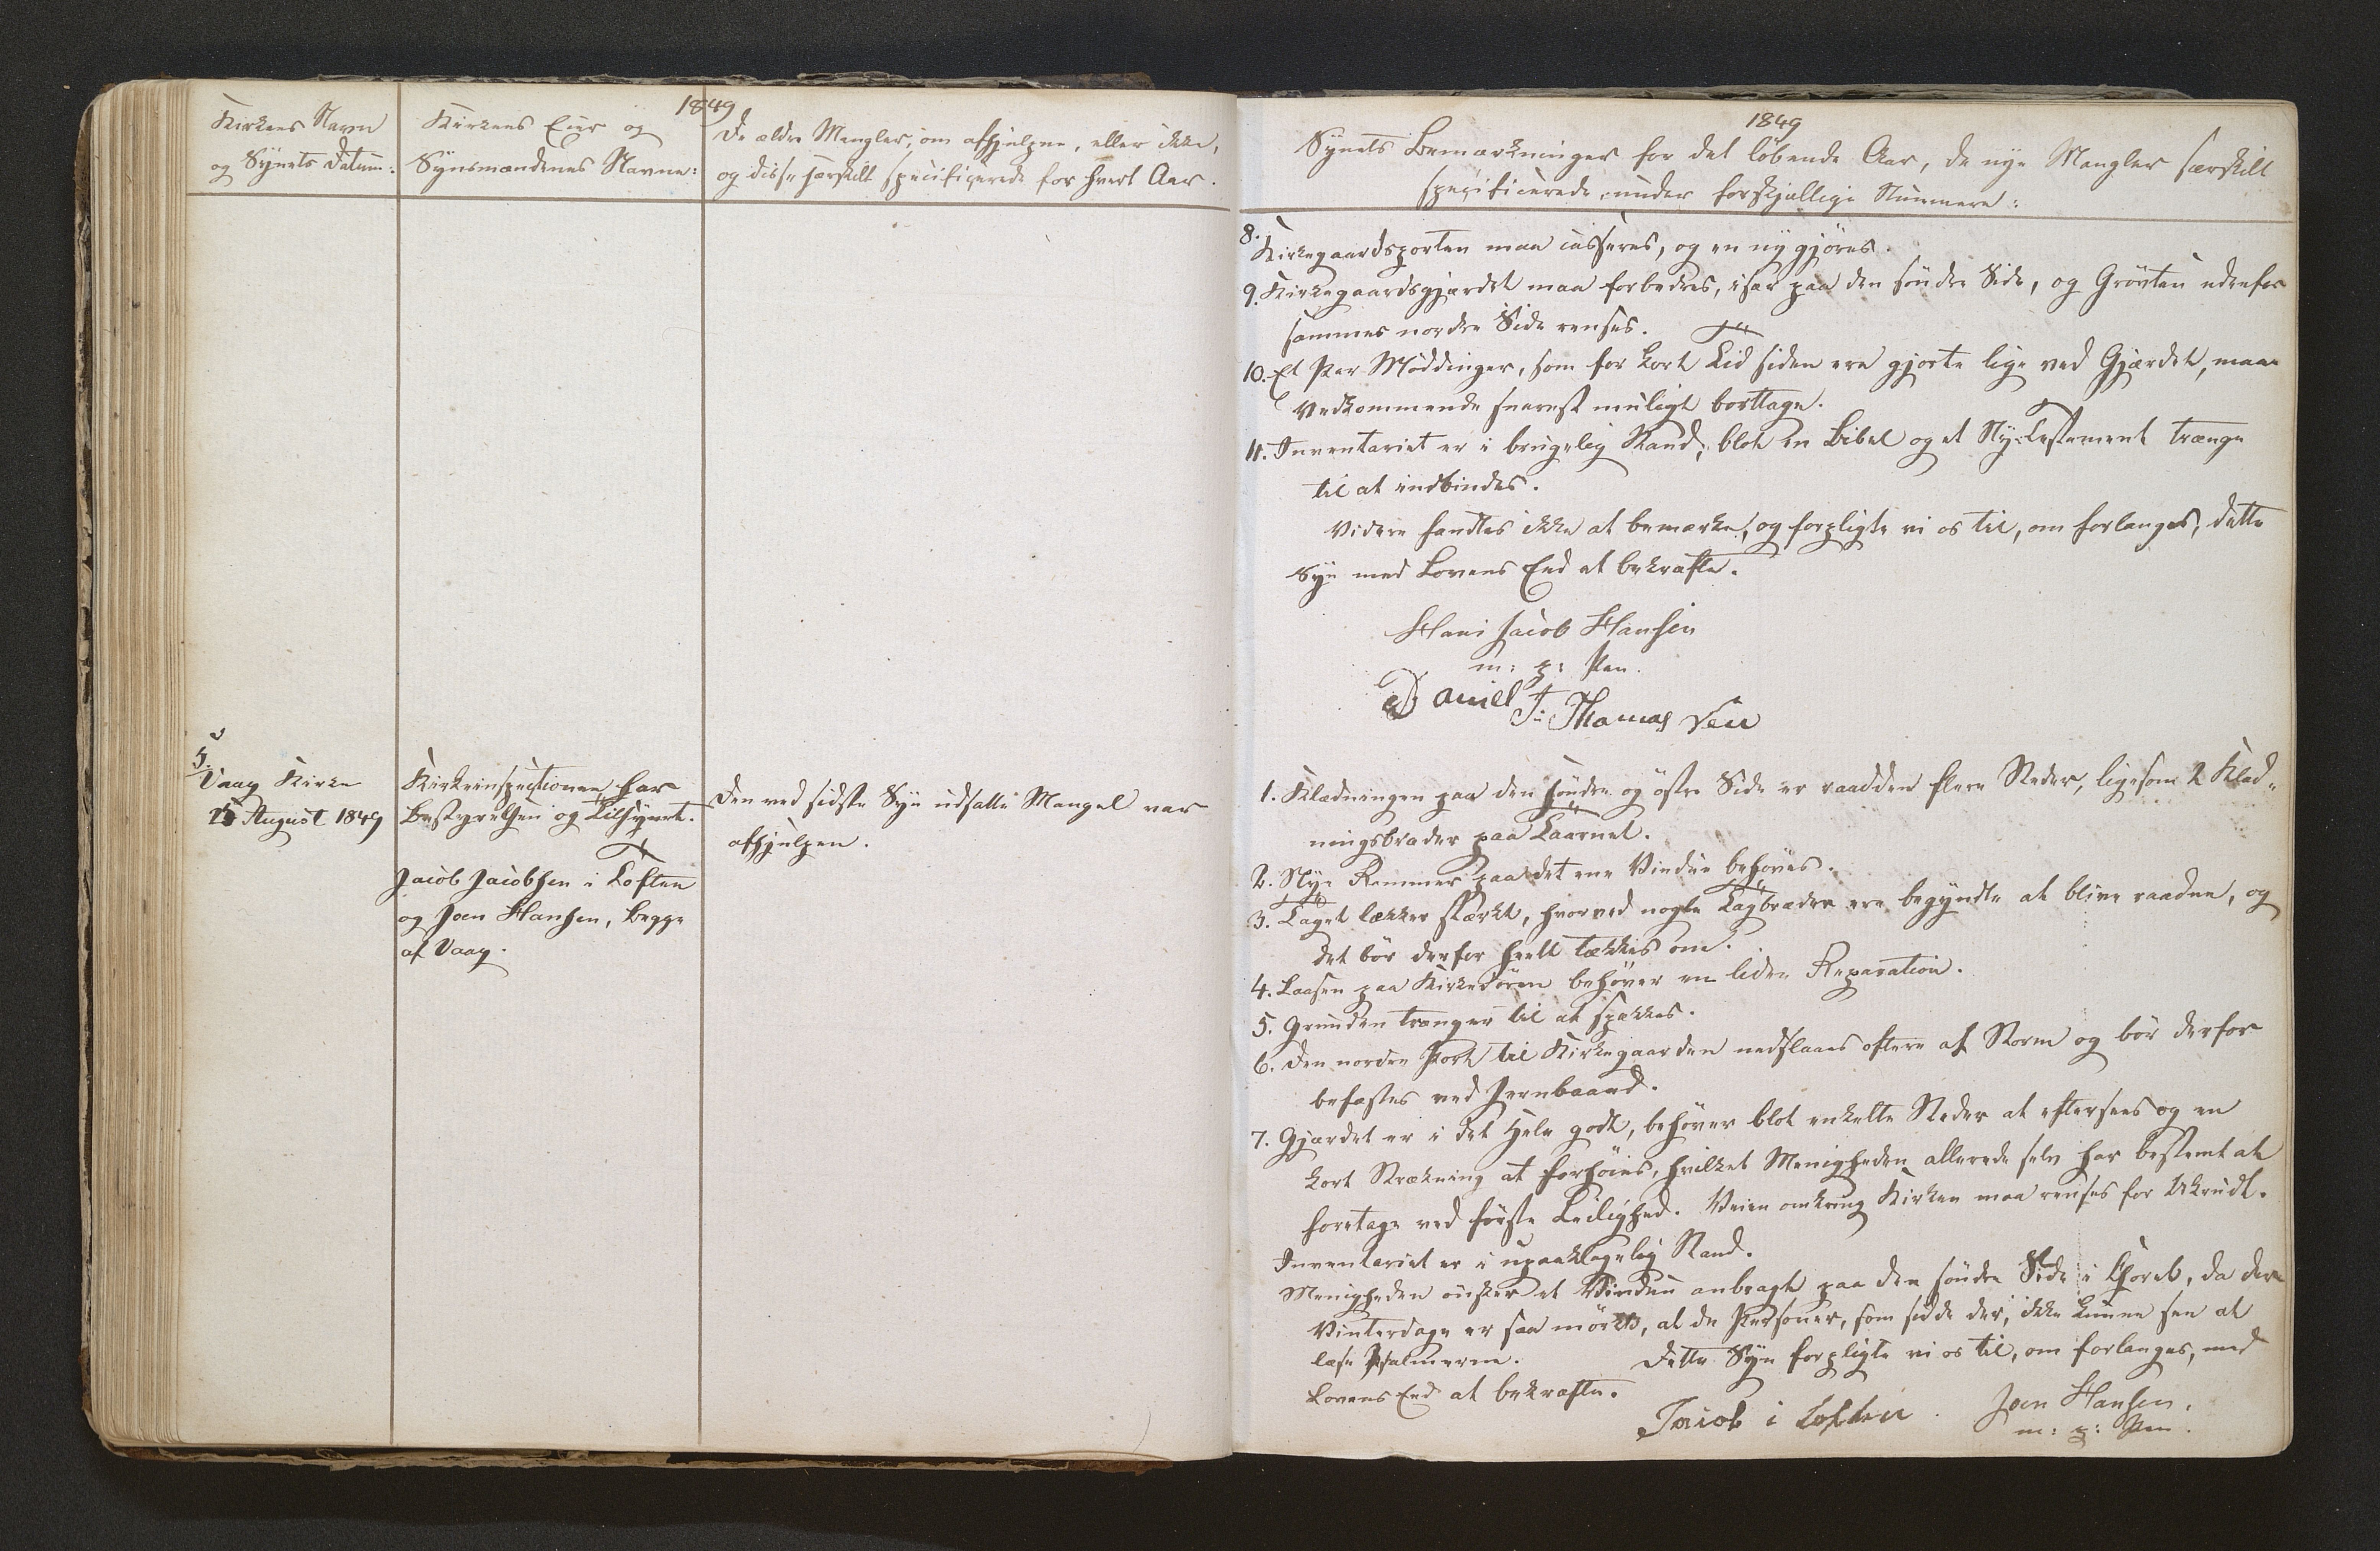 1849
Kirkens Navn
og Synets Datum:
Kirkens Eier og
Synsmændenes Navne:
De ældre Mangler, om afhjulpne, eller ikke,
og disse særskilt specificerede for hvert Aar.
5.
Vaag Kirke
15 August 1849
Kirkeinspectionen har
Bestyrelsen og Tilsynet.
Jacob Jacobsen i Toften
og Joen Hansen, begge
af Vaag.
Den ved sidste Syn udsatte Mangel var
afhjulpen.
1849
Synets Bemærkninger for det löbende Aar, de nye Mangler særskilt
specificerede under forskjellige Nummere:
8. Kirkegaardsporten maa casseres, og en ny gjöres.
9. Kirkegaardsgjærdet maa forbedres, især paa den söndre Side, og Gröften udenfor
sammes nordre Side renses.
10. Et Par Möddinger, som for kort Tid siden ere gjorte lige ved Gjærdet, maae
Vedkommende snarest muligt borttage.
11. Inventariet er i brugelig Stand; blot en Bibel og et Ny-Testement trænge
til at indbindes.
Videre fandtes ikke at bemærke, og forpligte vi os til, om forlanges, dette
Syn med Lovens Eed at bekræfte.
Hans Jacob Hansen
m: p: Pen.
Daniel J: Thomassen
1. Klædningen paa den söndre og östre Side er raadden flere Steder, ligesom 2 Klæd-
ningsbræder paa Taarnet.
2. Nye Rammer paa det ene Vindue behöves.
3. Taget lækker stærkt, hvorved nogle Tagbræder ere begyndte at blive raadne, og
det bör derfor heelt tækkes om.
4. Laasen paa Kirkedören behöver en liden Reparation.
5. Grunden trænger til at spækkes.
6. Den nordre Port til Kirkegaarden nedslaaes oftere af Storm og bör derfor
befæstes ved Jernbaand.
7. Gjærdet er i det Hele godt, behöver blot enkelte Steder at eftersees og en
kort Strækning at forhöies, hvilket Menigheden allerede selv har bestemt at
foretage ved förste Leilighed. Veien omkring Kirken maa renses for Ukrudt.
Inventariet er i upaaklagelig Stand.
Menigheden önsker et Vindue anbragt paa den söndre Side i Choret, da der
Vinterdage er saa mörkt, at de Personer, som sidde der, ikke kunne see at
læse Psalmerne. Dette Syn forpligte vi os til, om forlanges, med
Lovens Eed at bekræfte.
Jacob i Toften. Joen Hansen,
m: p: Pen.